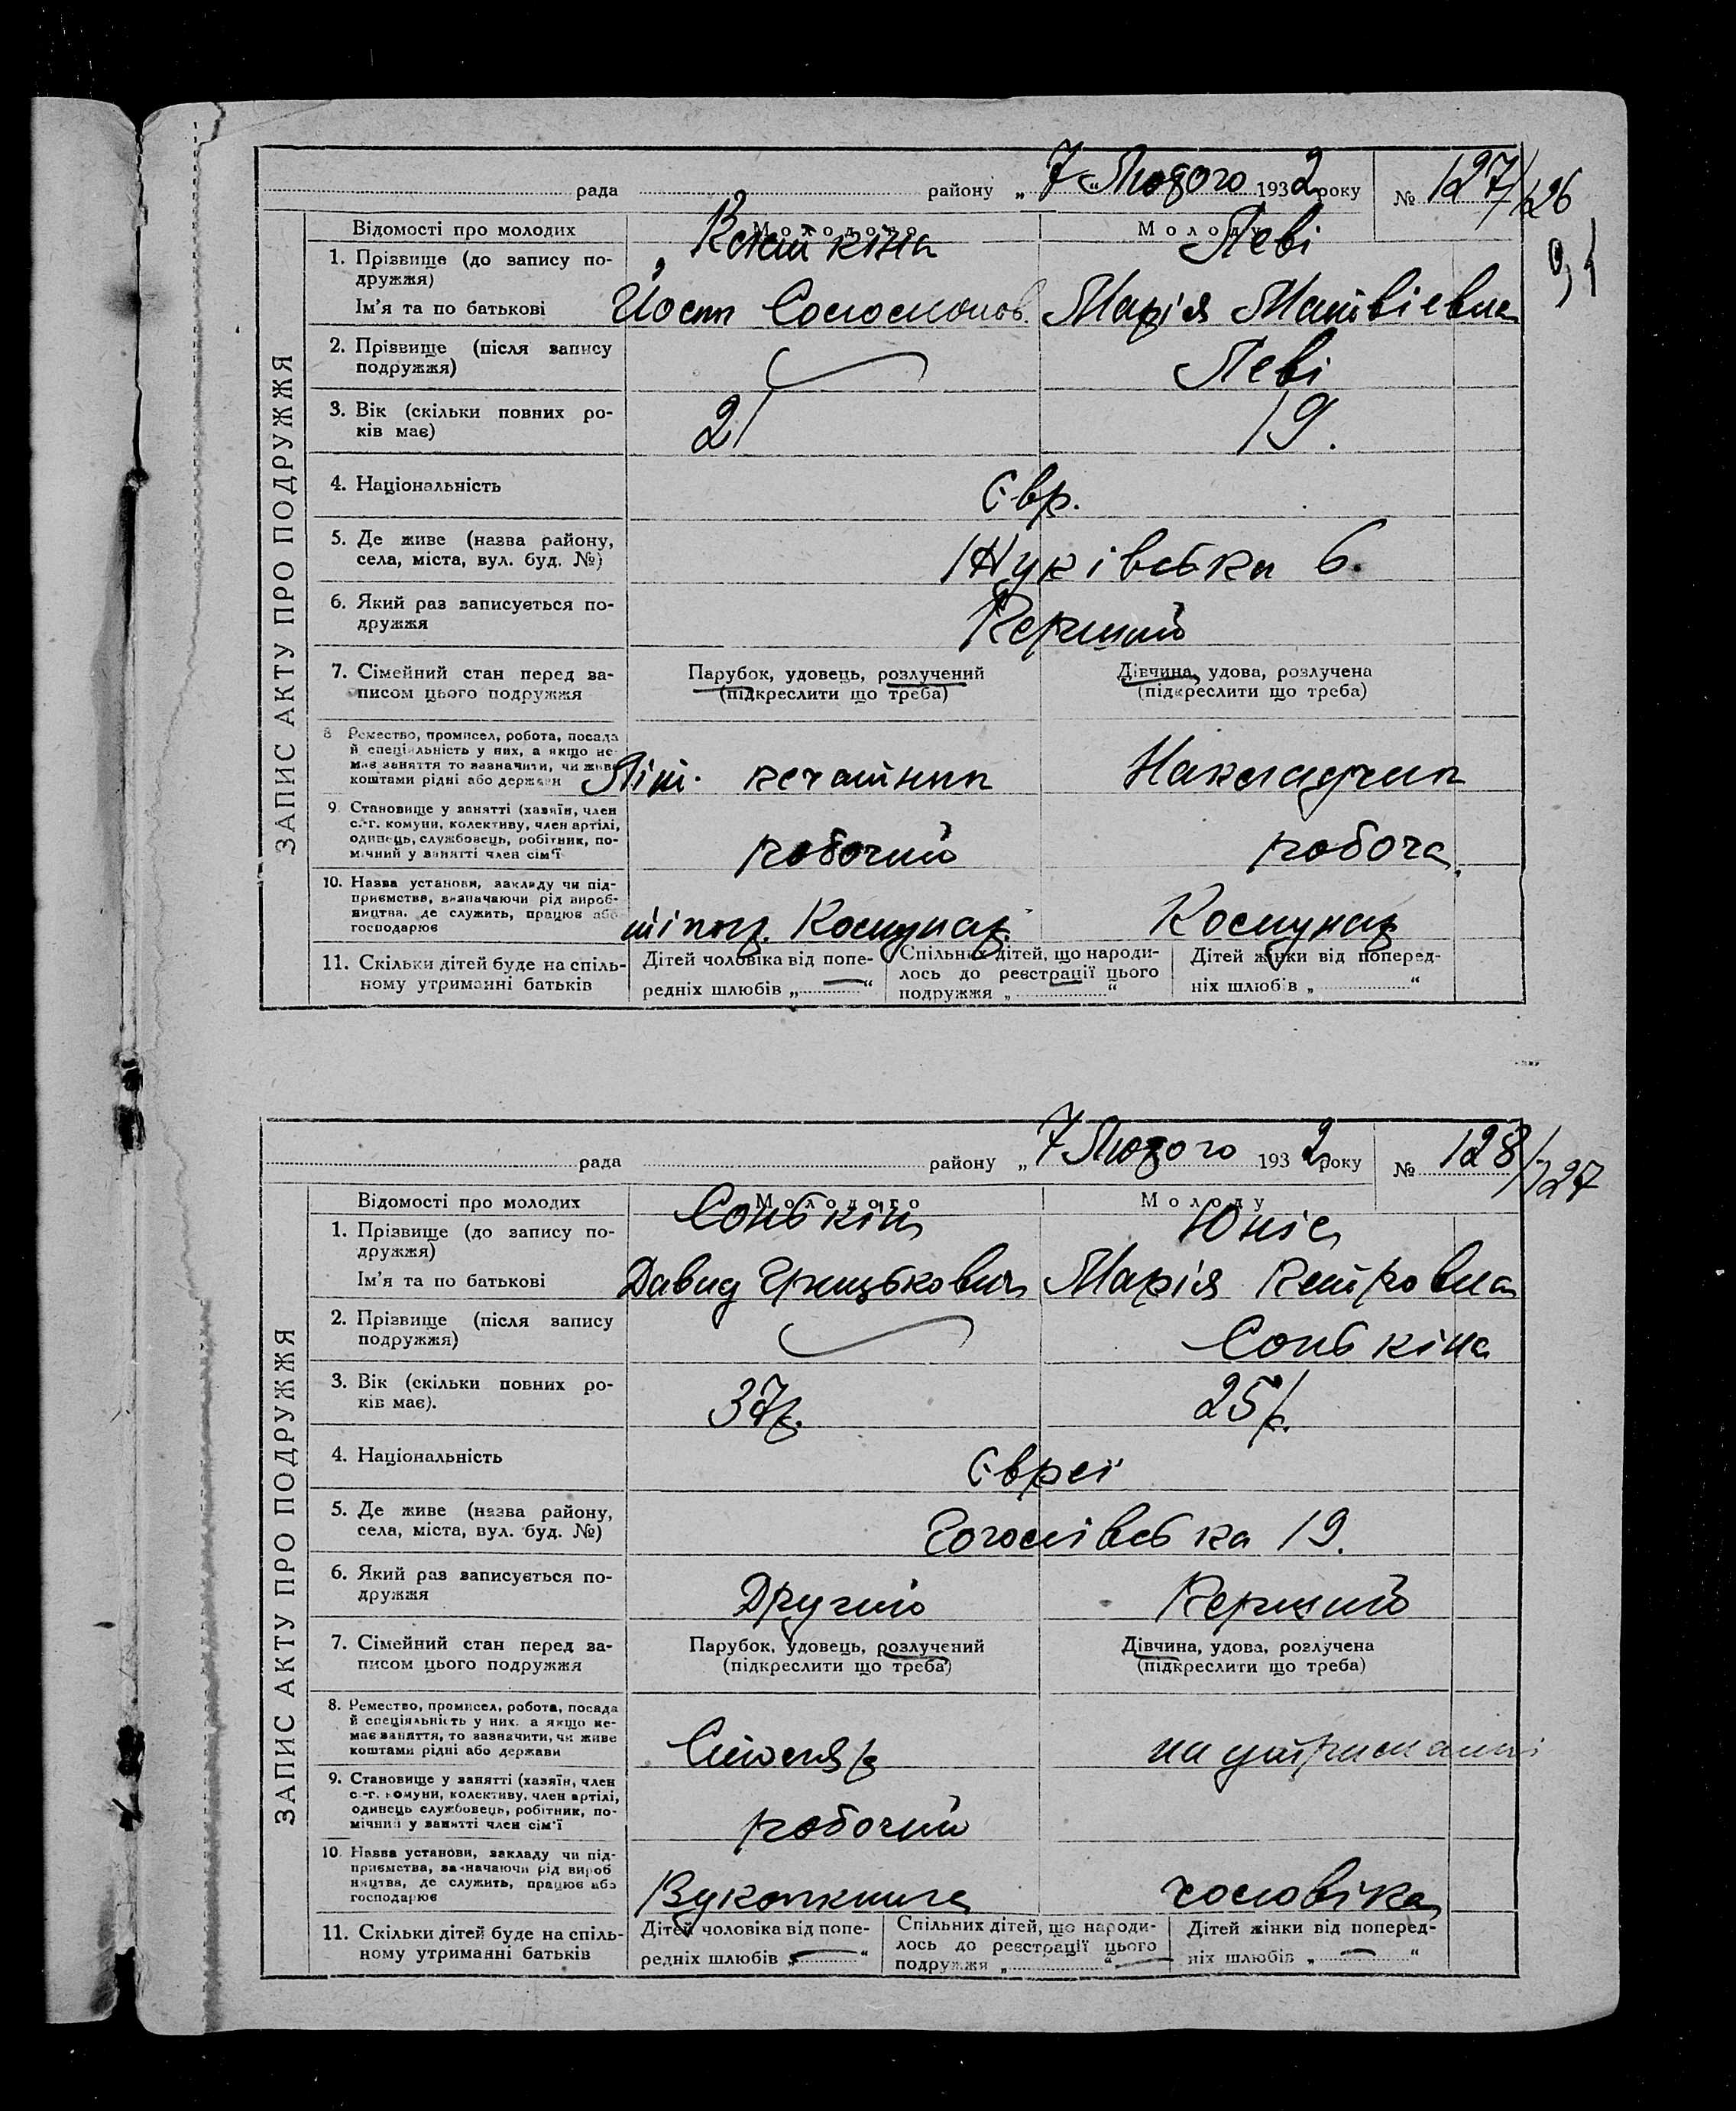 рада району „ 7 „ Лютого 1932 року № 127/126
Відомості про молодих Молодого Молоду
1. Прізвище (до запису по-
дружжя) Леві
Ім'я та по батькові Йосип Соломонов. Марія Матвієвна
2. Прізвище (після запису
подружжя) Леві
3. Вік (скільки повних ро-
ків має) 21 19.
4. Національність Євр.
5. Де живе (назва району,
села, міста, вул. буд. №) Жуківська 6.
6. Який раз записується по-
дружжя Перший
7. Сімейний стан перед за-
писом цього подружжя
Парубок, удовець, розлучений
(підкреслити що треба)
Дівчина, удова, розлучена
(підкреслити що треба)
8 Ремество, промисел, робота, посада
й спеціяльність у них, а якщо не-
має заняття то зазначити, чи живе
коштами рідні або держави
Літ. печатник Накладчик
9. Становище у занятті (хазяїн, член
с.-г. комуни, колективу, член артілі,
одинець, службовець, робітник, по-
мічний у занятті член сім'ї
робочий робоча
10. Назва установи, закладу чи під-
приємства, визначаючи рід вироб-
ництва, де служить, працює або
господарює
тіпог. Комунар. Комунар
11. Скільки дітей буде на спіль-
ному утриманні батьків
Дітей чоловіка від попе-
редніх шлюбів „ — “
Спільних дітей, що народи-
лось до реєстрації цього
подружжя „ “
Дітей жінки від поперед-
ніх шлюбів „ “
ЗАПИС АКТУ ПРО ПОДРУЖЖЯ
рада району „ 7 Лютого 1932 року № 128/127
Відомості про молодих Молодого Молоду
1. Прізвище (до запису по-
дружжя) Сонькін Юніс
Ім'я та по батькові Давид Грицькович Марія Петровна
2. Прізвище (після запису
подружжя) Сонькіна
3. Вік (скільки повних ро-
ків має). 37р. 25р.
4. Національність Євреї
5. Де живе (назва району,
села, міста, вул. буд. №) Гоголівська 19.
6. Який раз записується по-
дружжя Другий Перший
7. Сімейний стан перед за-
писом цього подружжя
Парубок, удовець, розлучений
(підкреслити що треба)
Дівчина, удова, розлучена
(підкреслити що треба)
8. Ремество, промисел, робота, посада
й спеціяльність у них, а якщо не-
має заняття, то зазначити, чи живе
коштами рідні або держави
Столяр на утриманні
9. Становище у занятті (хазяїн, член
с.-г. комуни, колективу, член артілі,
одинець службовець, робітник, по-
мічний у занятті член сім'ї
робочий
10. Назва установи, закладу чи під-
приємства, зазначаючи рід вироб
ництва, де служить, працює або
господарює
Вукопкнига чоловіка
11. Скільки дітей буде на спіль-
ному утриманні батьків
Дітей чоловіка від попе-
редніх шлюбів „ — “
Спільних дітей, що народи-
лось до реєстрації цього
подружжя „ “ —
Дітей жінки від поперед-
ніх шлюбів „ — “
ЗАПИС АКТУ ПРО ПОДРУЖЖЯ